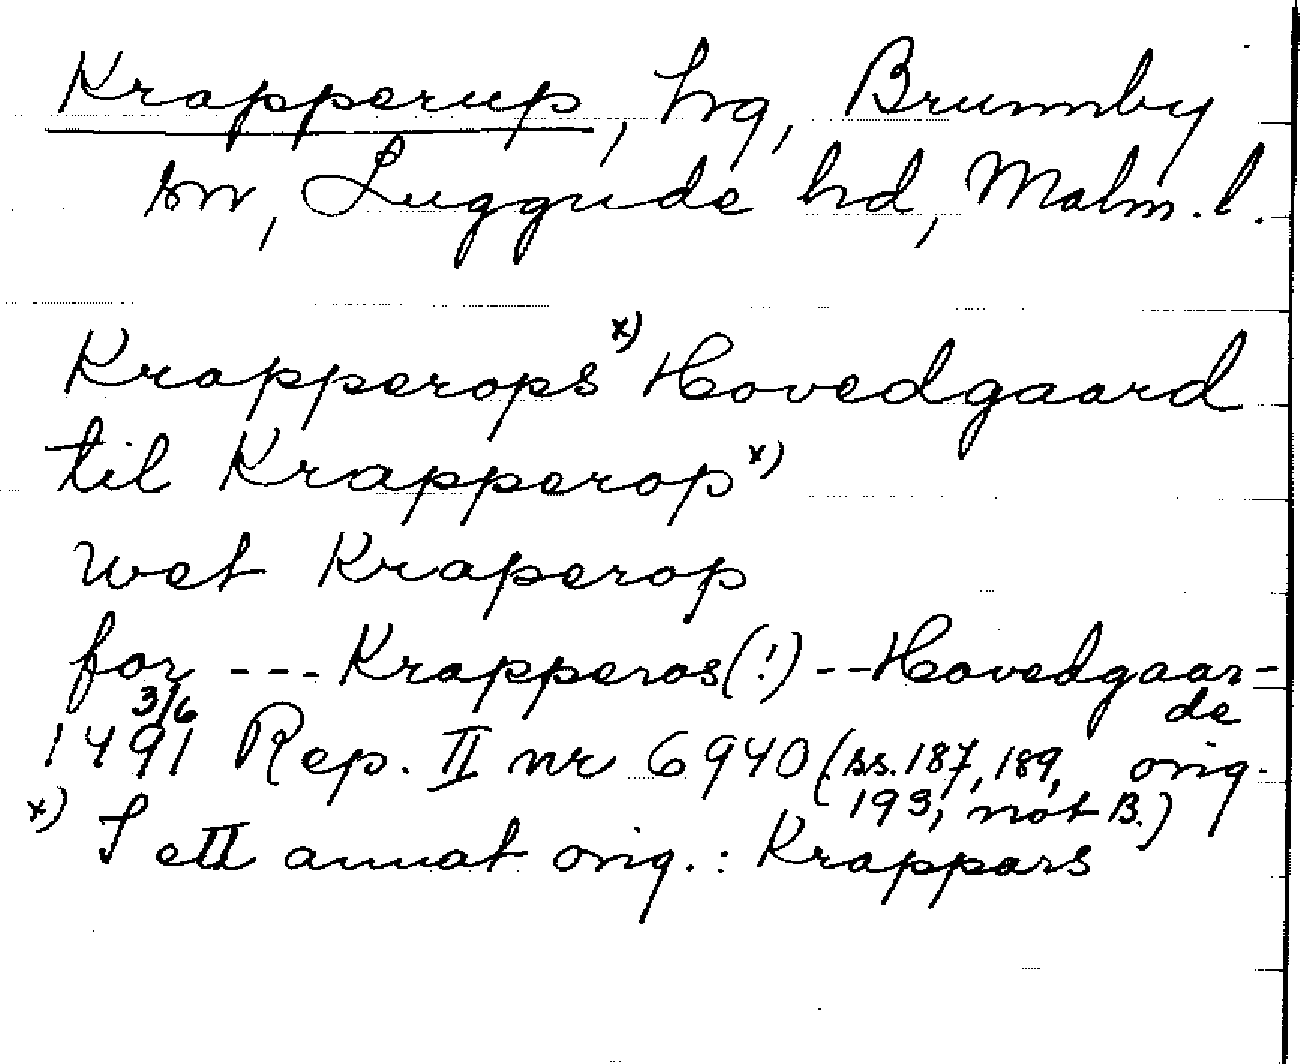 Krapperup, hg, Brunnby
sn, Luggude hd, Malm. l.
Krapperops x) Hovedgaard
til Krapperop x)
wet Kraperop
for --- Krapperos(!) -- Hovedgaar-
de
3/6
1491 Rep. II nr 6940 (ss. 187, 189, orig.
193, not B.)
x) I ett annat orig.: Krappars